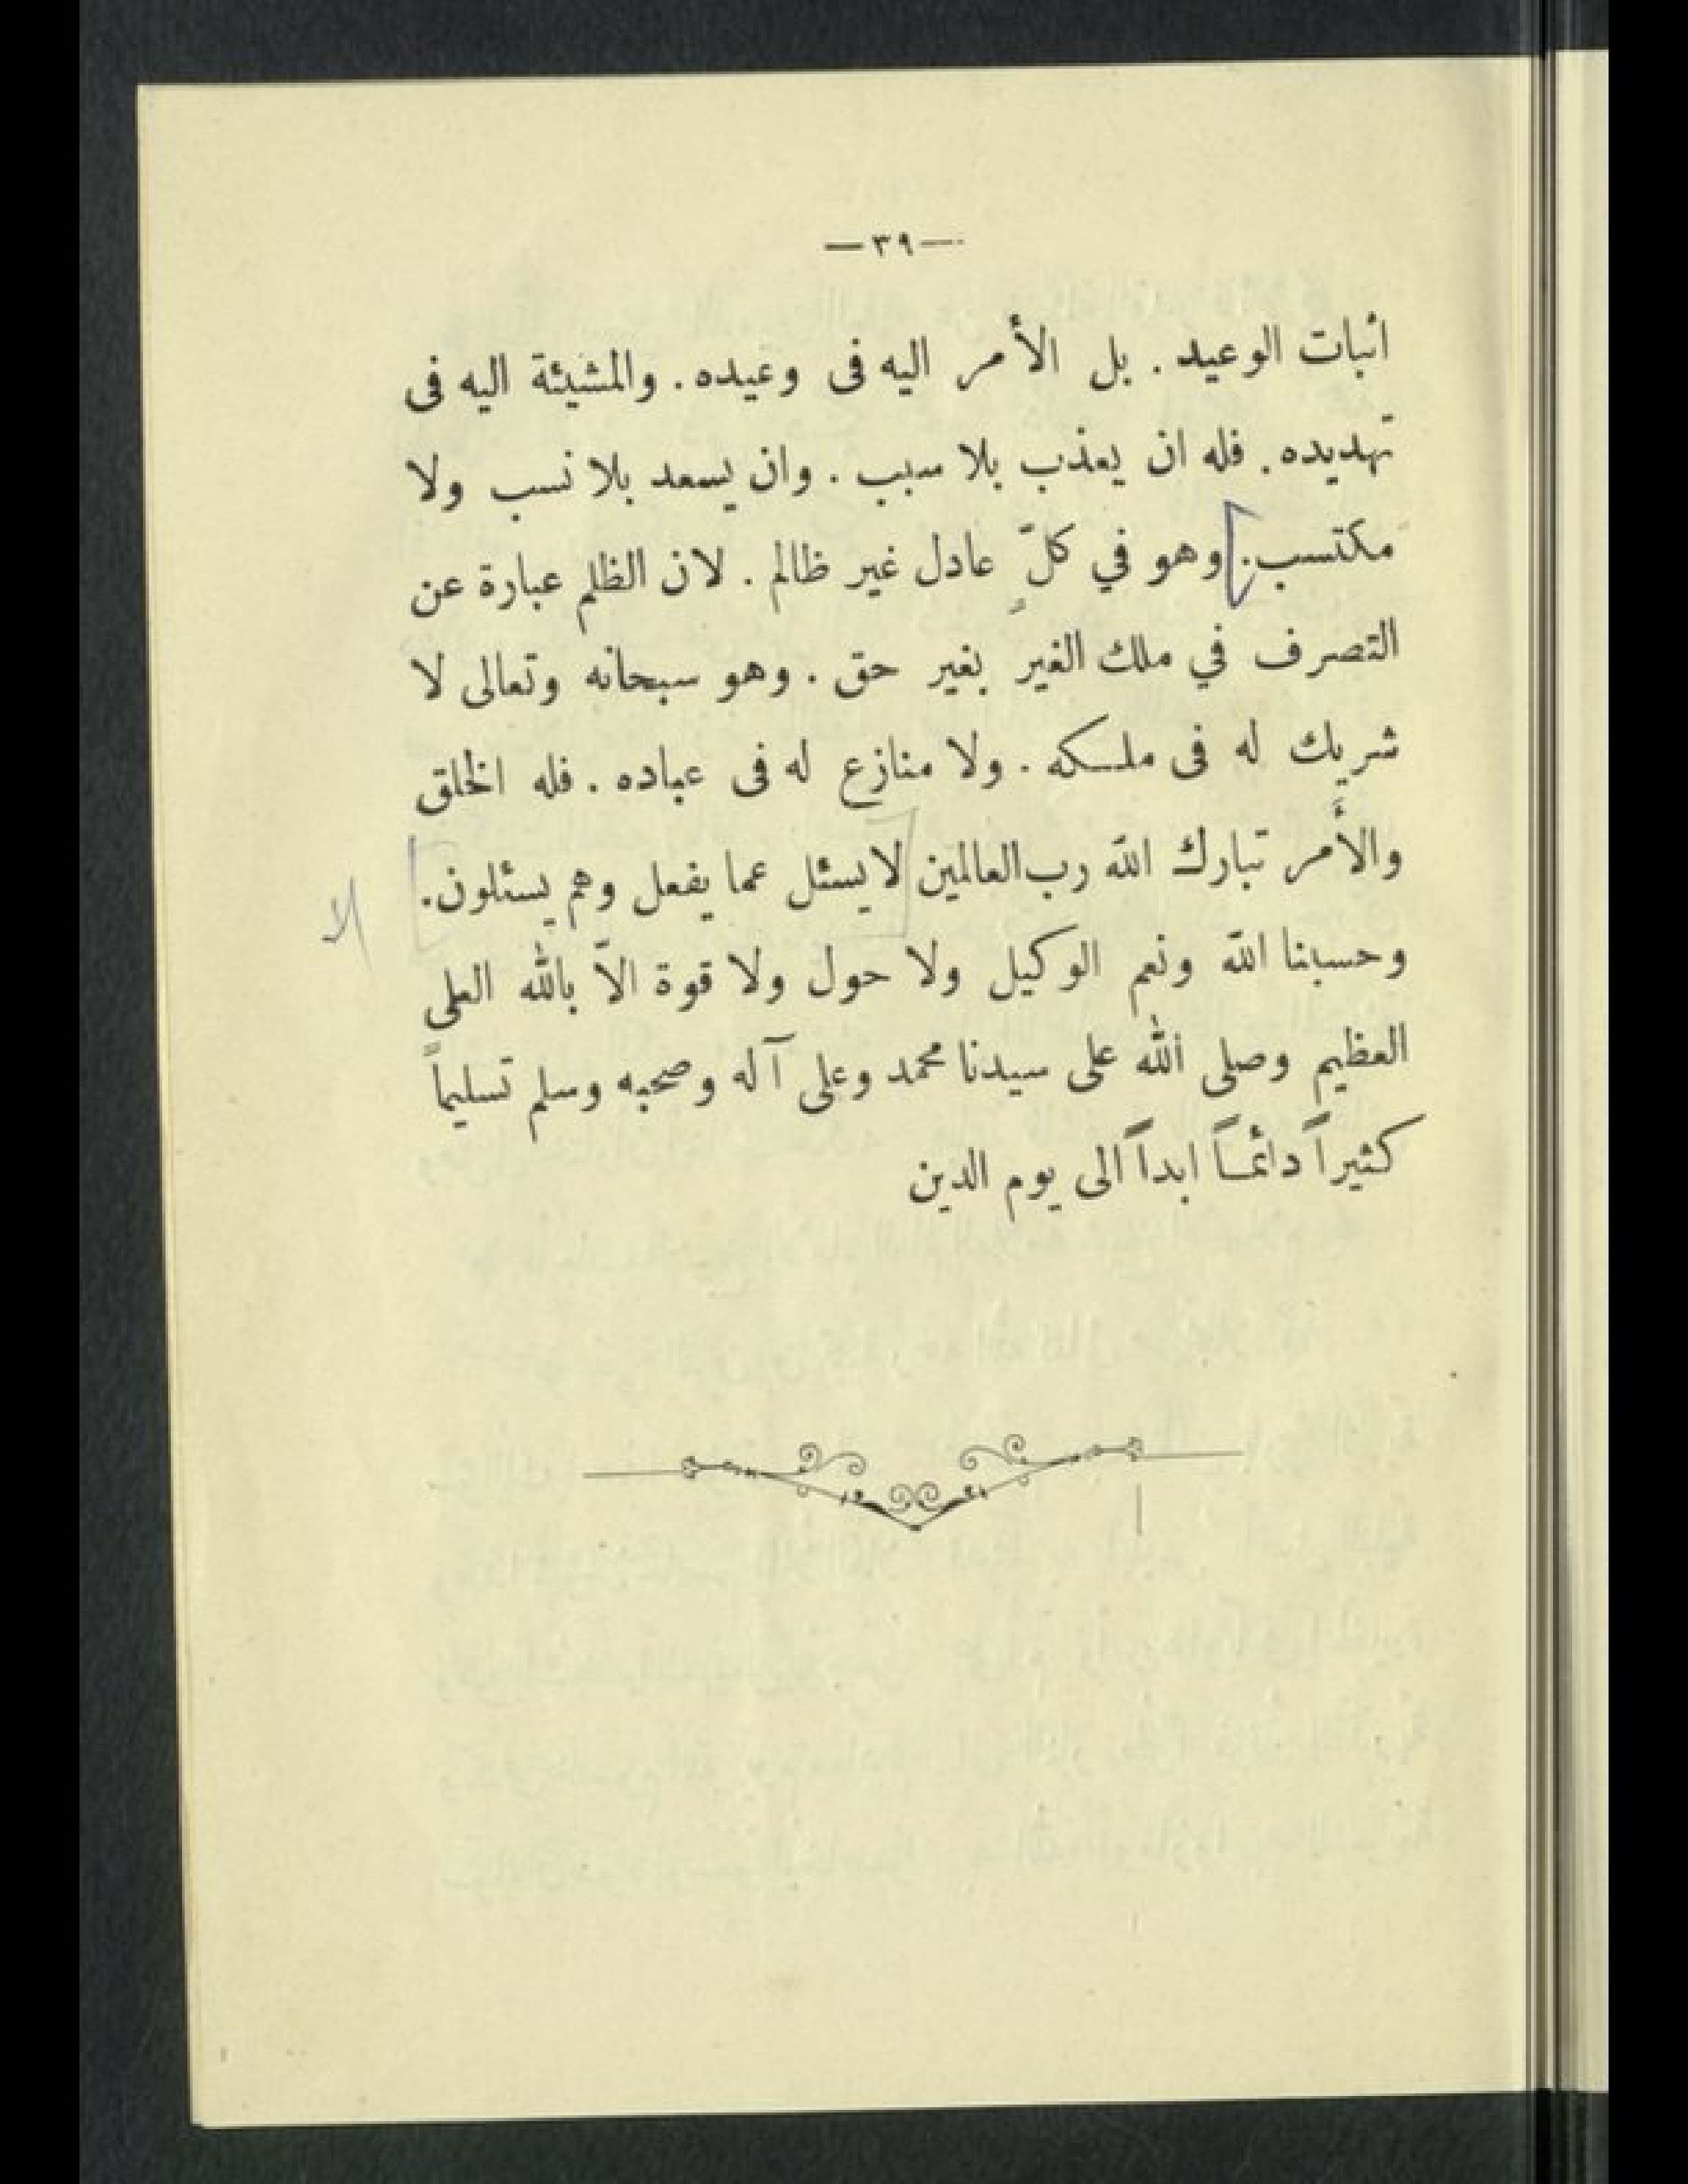 —٣٩—
اثبات الوعيد . بل الأمر اليه فى وعيده . والمشيئة اليه فى
تهديده . فله ان يعذب بلا سبب . وان يسعد بلا نسب ولا
مكتسب . وهو في كلّ عادل غير ظالم . لان الظلم عبارة عن
التصرف في ملك الغير بغير حق . وهو سبحانه وتعالى لا
شريك له فى ملكه . ولا منازع له فى عباده . فله الخلق
والأمر تبارك الله رب العالمين لا يسئل عما يفعل وهم يسئلون .
وحسبنا الله ونعم الوكيل ولا حول ولا قوة الاّ بالله العلى
العظيم وصلى الله على سيدنا محمد وعلى آله وصحبه وسلم تسليماً
كثيراً دائماً ابداً الى يوم الدين